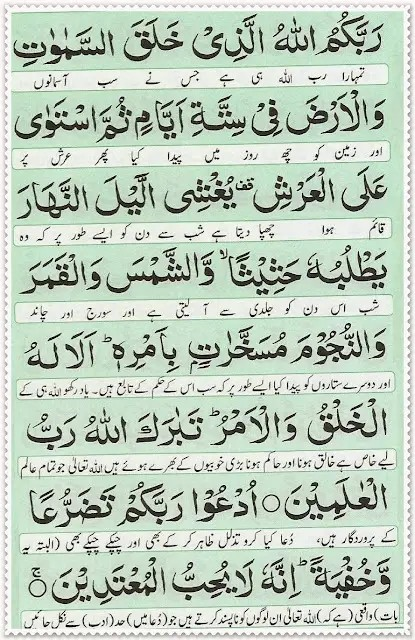 رَبَّكُمُ اللّٰهُ الَّذِىْ خَلَقَ السَّمٰوٰتِ
تمہارا رب اللہ ہی ہے جس نے سب آسمانوں
وَالْاَرْضَ فِىْ سِتَّةِ اَيَّامٍ ثُمَّ اسْتَوٰى
اور زمین کو چھ روز میں پیدا کیا پھر عرش پر
عَلَى الْعَرْشِ قف يُغْشِى الَّيْلَ النَّهَارَ
قائم ہوا چھپا دیتا ہے شب سے دن کو ایسے طور پر کہ وہ
يَطْلُبُهٗ حَثِيْثًا ۙ وَّالشَّمْسَ وَالْقَمَرَ
شب اس دن کو جلدی سے آ لیتی ہے اور سورج اور چاند
وَالنُّجُوْمَ مُسَخَّرٰتٍۭ بِاَمْرِهٖ ؕ اَلَا لَهُ
اور دوسرے ستاروں کو پیدا کیا ایسے طور پر کہ سب اس کے حکم کے تابع ہیں۔ یاد رکھو اللہ ہی کے
الْخَلْقُ وَالْاَمْرُ ؕ تَبٰرَكَ اللّٰهُ رَبُّ
لیے خاص ہے خالق ہونا اور حاکم ہونا بڑی خوبیوں کے بھرے ہوئے ہیں اللہ تعالیٰ جو تمام عالم
الْعٰلَمِيْنَ ○ اُدْعُوْا رَبَّكُمْ تَضَرُّعًا
کے پروردگار ہیں، دُعا کیا کرو تذلل ظاہر کر کے بھی اور چپکے چپکے بھی (البتہ یہ
وَّخُفْيَةً ؕ اِنَّهٗ لَا يُحِبُّ الْمُعْتَدِيْنَ ○ ۚ
بات) واقعی (ہے کہ) اللہ تعالیٰ ان لوگوں کو ناپسند کرتے ہیں جو (دُعا میں) حد (ادب) سے نکل جائیں